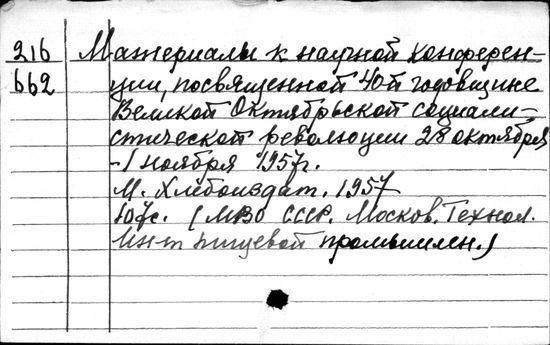 216 Материалы к научной конферен-
662 ции, посвященной 40й годовщине
Великой Октябрьской социали-
стической революции 28 октября
-1 ноября 1957г.
М. Хлебоиздат. 1957
107с. (МВО СССР. Москов. Технол.
Ин-т пищевой промышлен.)